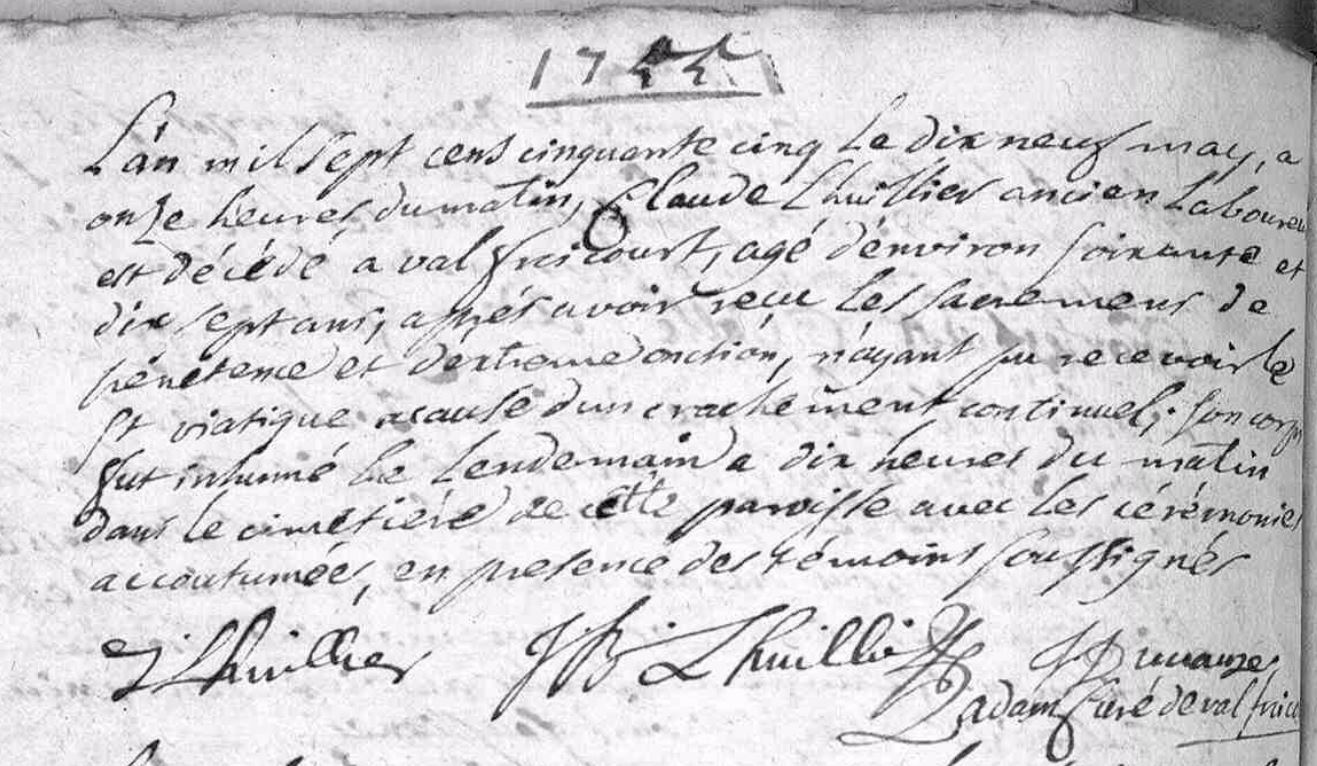 1755
L'an mil sept cens cinquante cinq le dix neuf may, a
onze heures du matin, Claude Lhuillier ancien Laboureu
est décédé a valfroicourt, agé d'environ soixante et
dix sept ans, aprés avoir reçu les sacremens de
pénétence et d'extreme onction, n'ayant pu recevoir le
st viatique acause d'un crachement continuel; son corps
fut inhumé Le Lendemain a dix heures du matin
dans le cimetiére de cette paroisse avec les cérémonies
accoutumées, en presence des témoins soussignés
J Lhuillier JB Lhuillier
adam Curé de valfroico